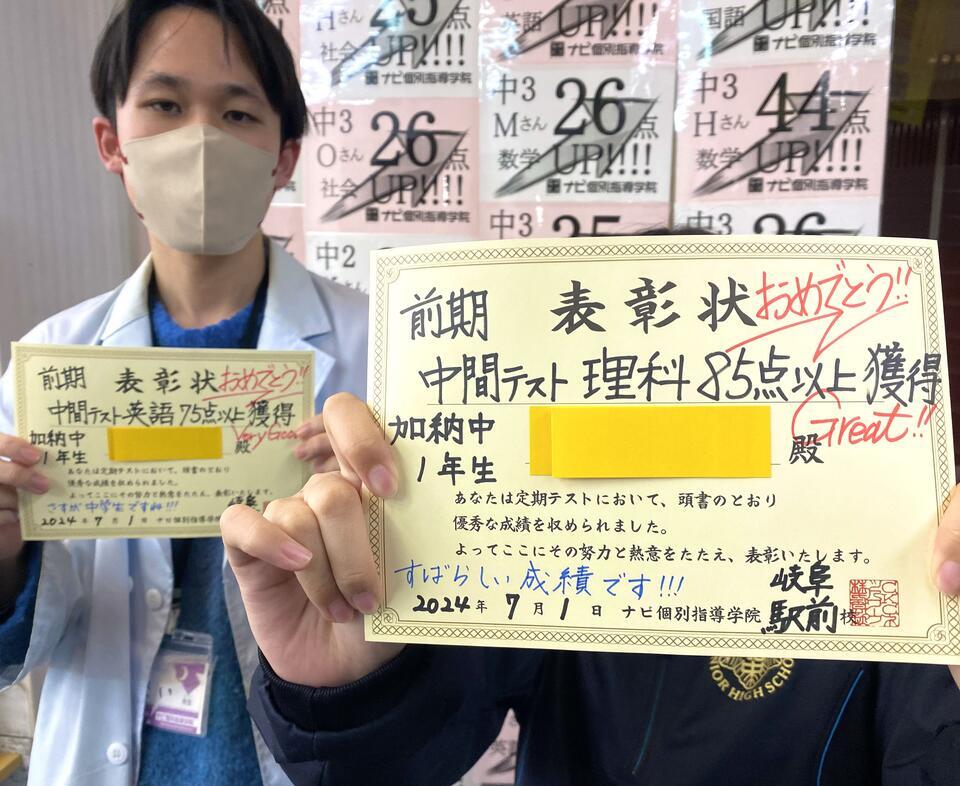 H さん
社会
25点
UP!!!!
ナビ個別指導学院
英語
UP!!!!
ナビ個別指導学院
国語
UP!!!!
ナビ個別指導学院
中3
Oさん
社会
26点
UP!!!!
ナビ個別指導学院
中3
Mさん
数学
26点
UP!!!!
ナビ個別指導学院
中3
Hさん
数学
44点
UP!!!!
ナビ個別指導学院
中2
中3
25
中3
26
前期 表彰状 おめでとう!!
中間テスト 英語 75点以上獲得
加納中
1年生 殿 Very Good
あなたは定期テストにおいて、頭書のとおり
優秀な成績を収められました。
よってここにその努力と熱意をたたえ、表彰いたします。
さすが中学生ですね!!!
2024年 7月 1日 ナビ個別指導学院
岐阜
前期 表彰状 おめでとう!!
中間テスト 理科 85点以上 獲得
加納中
1年生 殿 Great!!
あなたは定期テストにおいて、頭書のとおり
優秀な成績を収められました。
よってここにその努力と熱意をたたえ、表彰いたします。
すばらしい成績です!!!
2024年 7月 1日 ナビ個別指導学院 岐阜駅前校
IOR HIGH SCHO